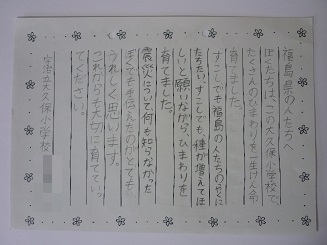 福島県の人たちへ
ぼくたちは、この大久保小学校で、
たくさんのひまわりを一生けん命
育てました。
すこしでも福島の人たちのやくに
たちたい。すこしでも、種が増えてほ
しいと願いながら、ひまわりを
育てました。
震災について何も知らなかった
ぼくでも伝えたのがとても
うれしく思います。
これからも大切に育てていっ
てください。
宇治市立大久保小学校